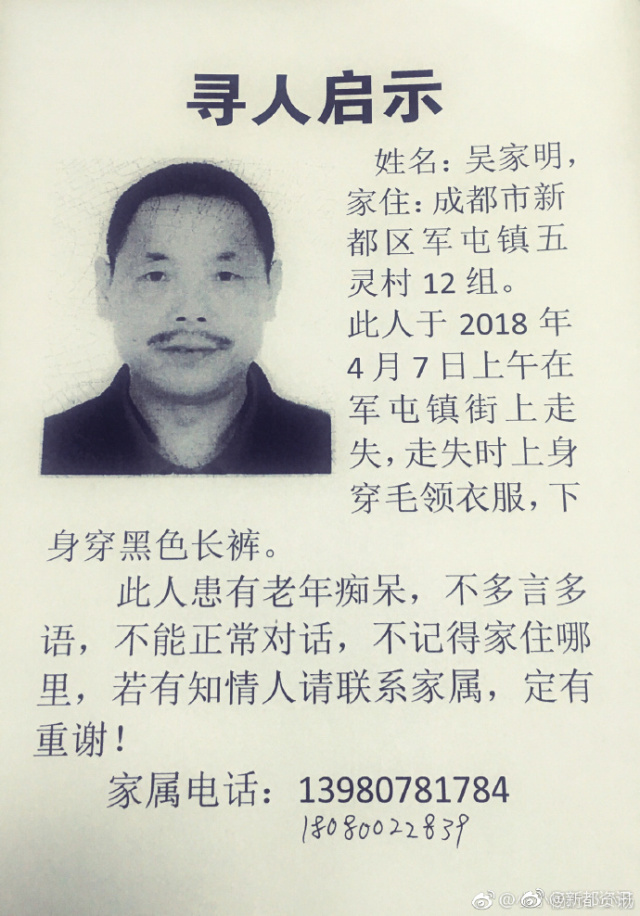 寻人启示
姓名：吴家明，
家住：成都市新
都区军屯镇五
灵村 12 组。
此人于 2018 年
4 月 7 日上午在
军屯镇街上走
失，走失时上身
穿毛领衣服，下
身穿黑色长裤。
此人患有老年痴呆，不多言多
语，不能正常对话，不记得家住哪
里，若有知情人请联系家属，定有
重谢！
家属电话：13980781784
18080022839
@ @新都资讯